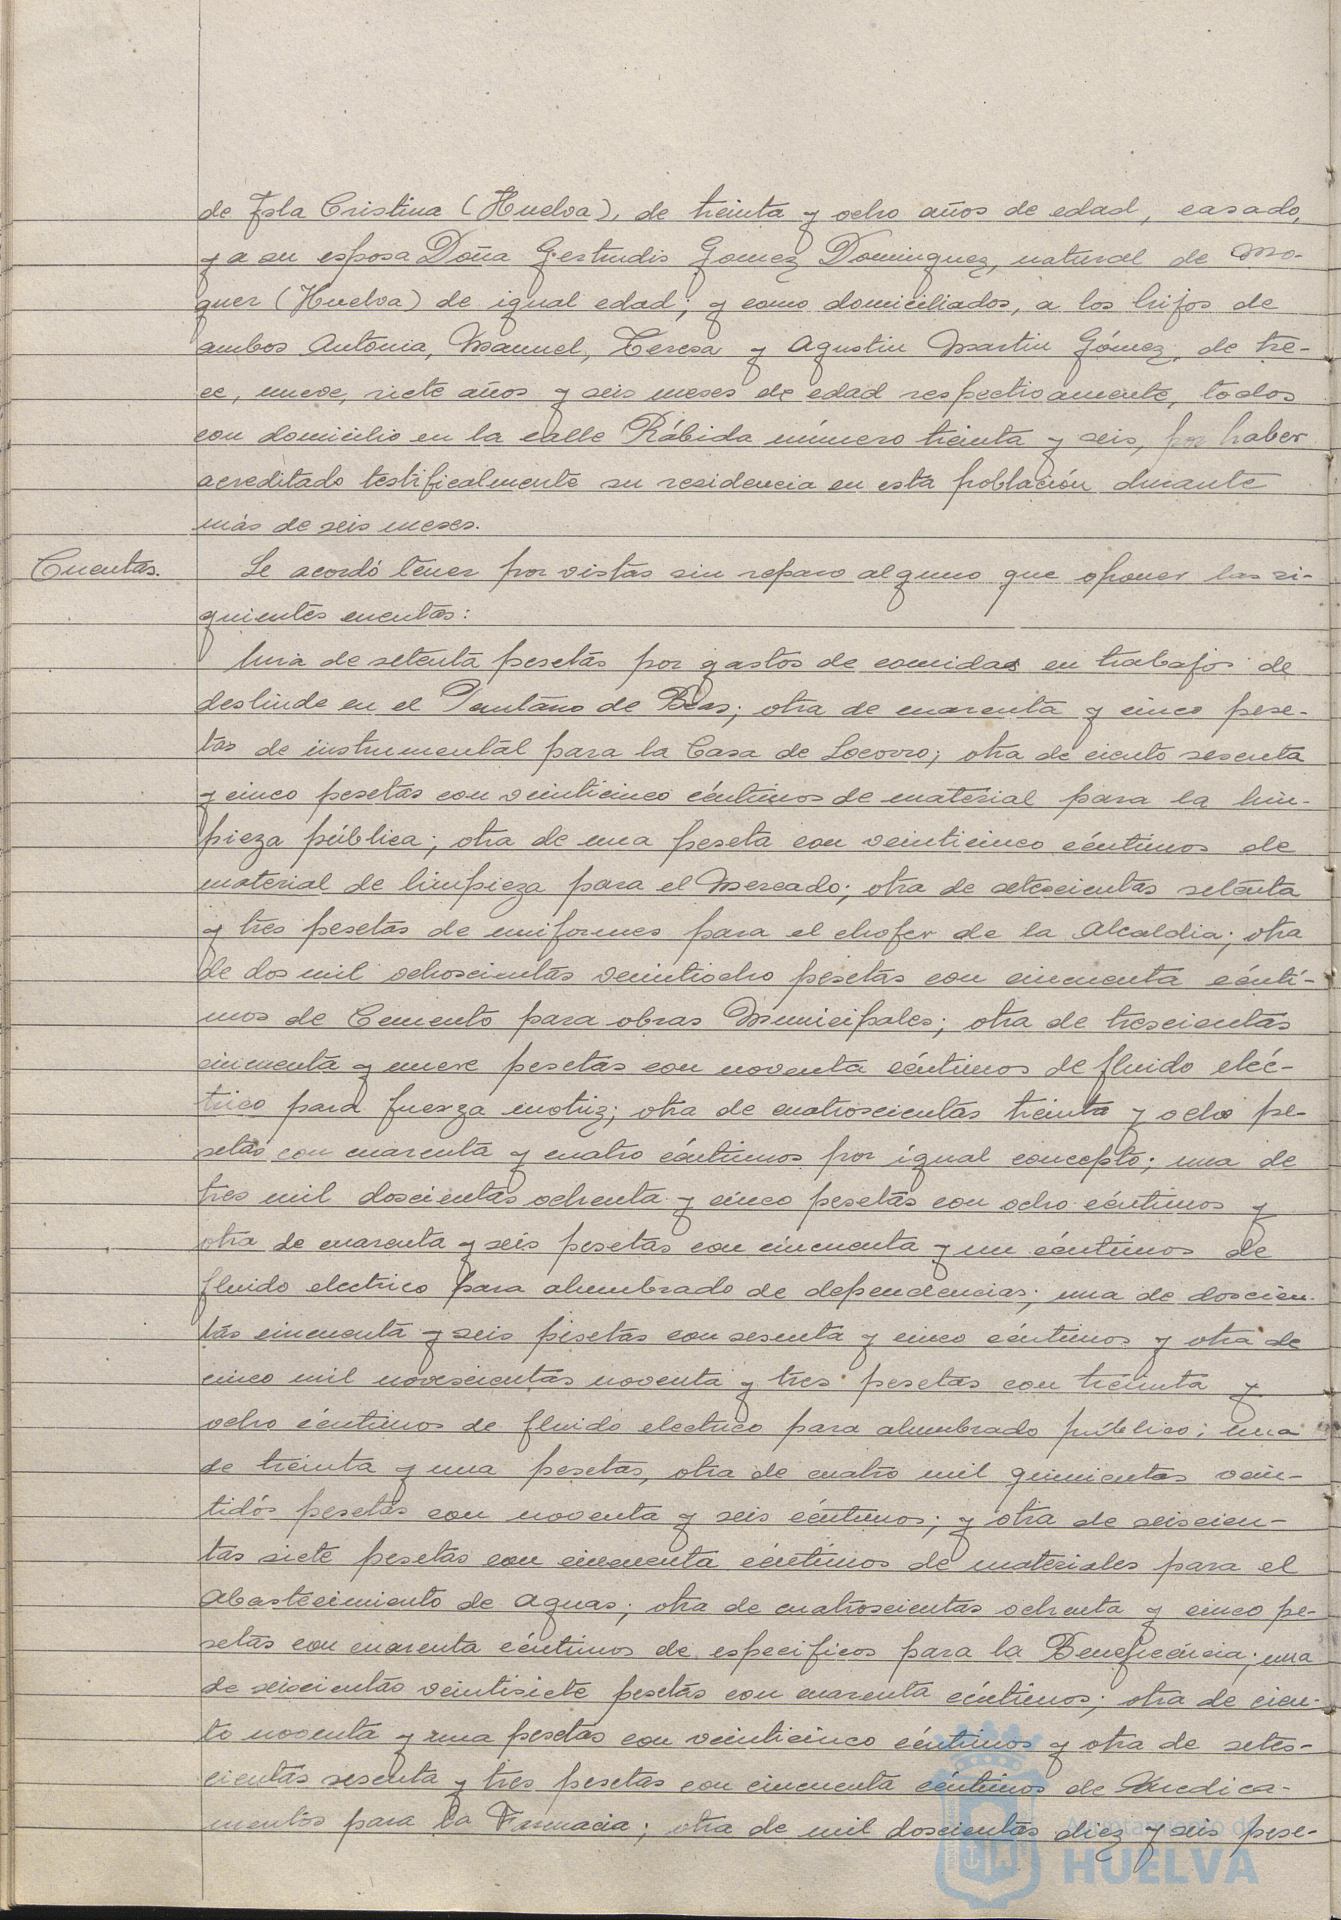 de Isla Cristina (Huelva), de treinta y ocho años de edad, casado,
y a su esposa Doña Gertrudis Gomez Dominguez, natural de Mo-
guer (Huelva) de igual edad; y como domiciliados, a los hijos de
ambos Antonia, Manuel, Teresa y Agustin Martin Gómez, de tre-
ce, nueve, siete años y seis meses de edad respectivamente, todos
con domicilio en la calle Rábida número treinta y seis, por haber
acreditado testificalmente su residencia en esta población durante
más de seis meses.
Cuentas. Se acordó tener por vistas sin reparo alguno que oponer las si-
guientes cuentas:
Una de setenta pesetas por gastos de comidas en trabajos de
deslinde en el Pantano de Beas; otra de cuarenta y cinco pese-
tas de instrumental para la Casa de Socorro; otra de ciento sesenta
y cinco pesetas con veinticinco céntimos de material para la lim-
pieza pública; otra de una peseta con veinticinco céntimos de
material de limpieza para el Mercado; otra de setescientas setenta
y tres pesetas de uniformes para el chofer de la Alcaldia; otra
de dos mil ochoscientas veintiocho pesetas con cincuenta cénti-
mos de Cemento para obras Municipales; otra de trescientas
cincuenta y nueve pesetas con noventa céntimos de fluido eléc-
trico para fuerza motriz; otra de cuatroscientas treinta y ocho pe-
setas con cuarenta y cuatro céntimos por igual concepto; una de
tres mil doscientas ochenta y cinco pesetas con ocho céntimos y
otra de cuarenta y seis pesetas con cincuenta y un céntimos de
fluido electrico para alumbrado de dependencias; una de doscien-
tas cincuenta y seis pesetas con sesenta y cinco céntimos y otra de
cinco mil novescientas noventa y tres pesetas con treinta y
ocho céntimos de fluido electrico para alumbrado público; una
de treinta y una pesetas, otra de cuatro mil quinientas vein-
tidós pesetas con noventa y seis céntimos; y otra de seiscien-
tas siete pesetas con cincuenta céntimos de materiales para el
Abastecimiento de Aguas; otra de cuatroscientas ochenta y cinco pe-
setas con cuarenta céntimos de especificos para la Beneficencia; una
de seiscientas veintisiete pesetas con cuarenta céntimos; otra de cien-
to noventa y una pesetas con veinticinco céntimos y otra de setes-
cientas sesenta y tres pesetas con cincuenta céntimos de medica-
mentos para la Farmacia; otra de mil doscientas diez y seis pese-
Ayuntamiento de
HUELVA